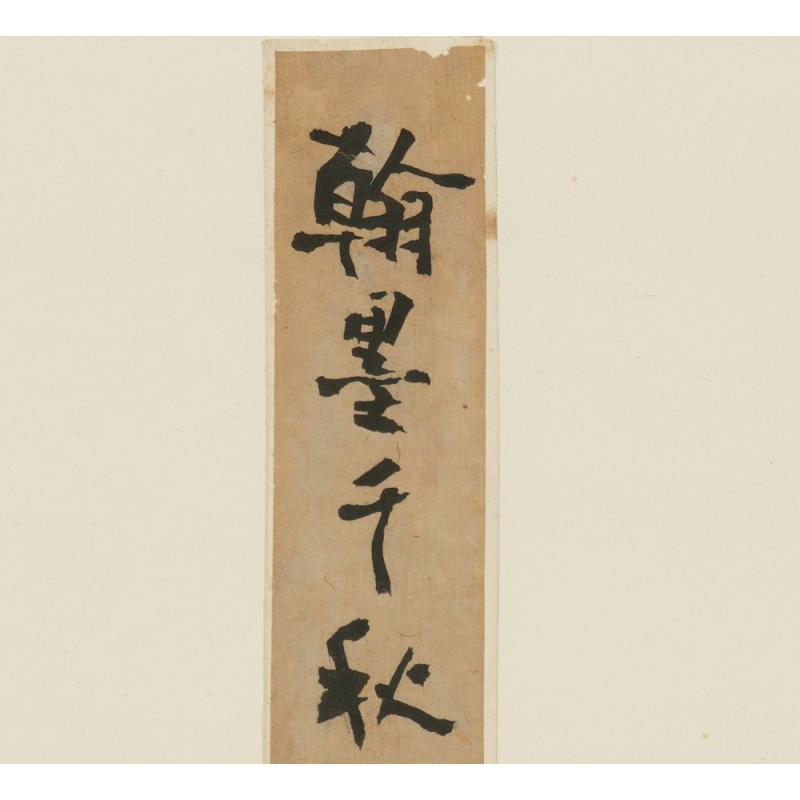 翰墨千秋